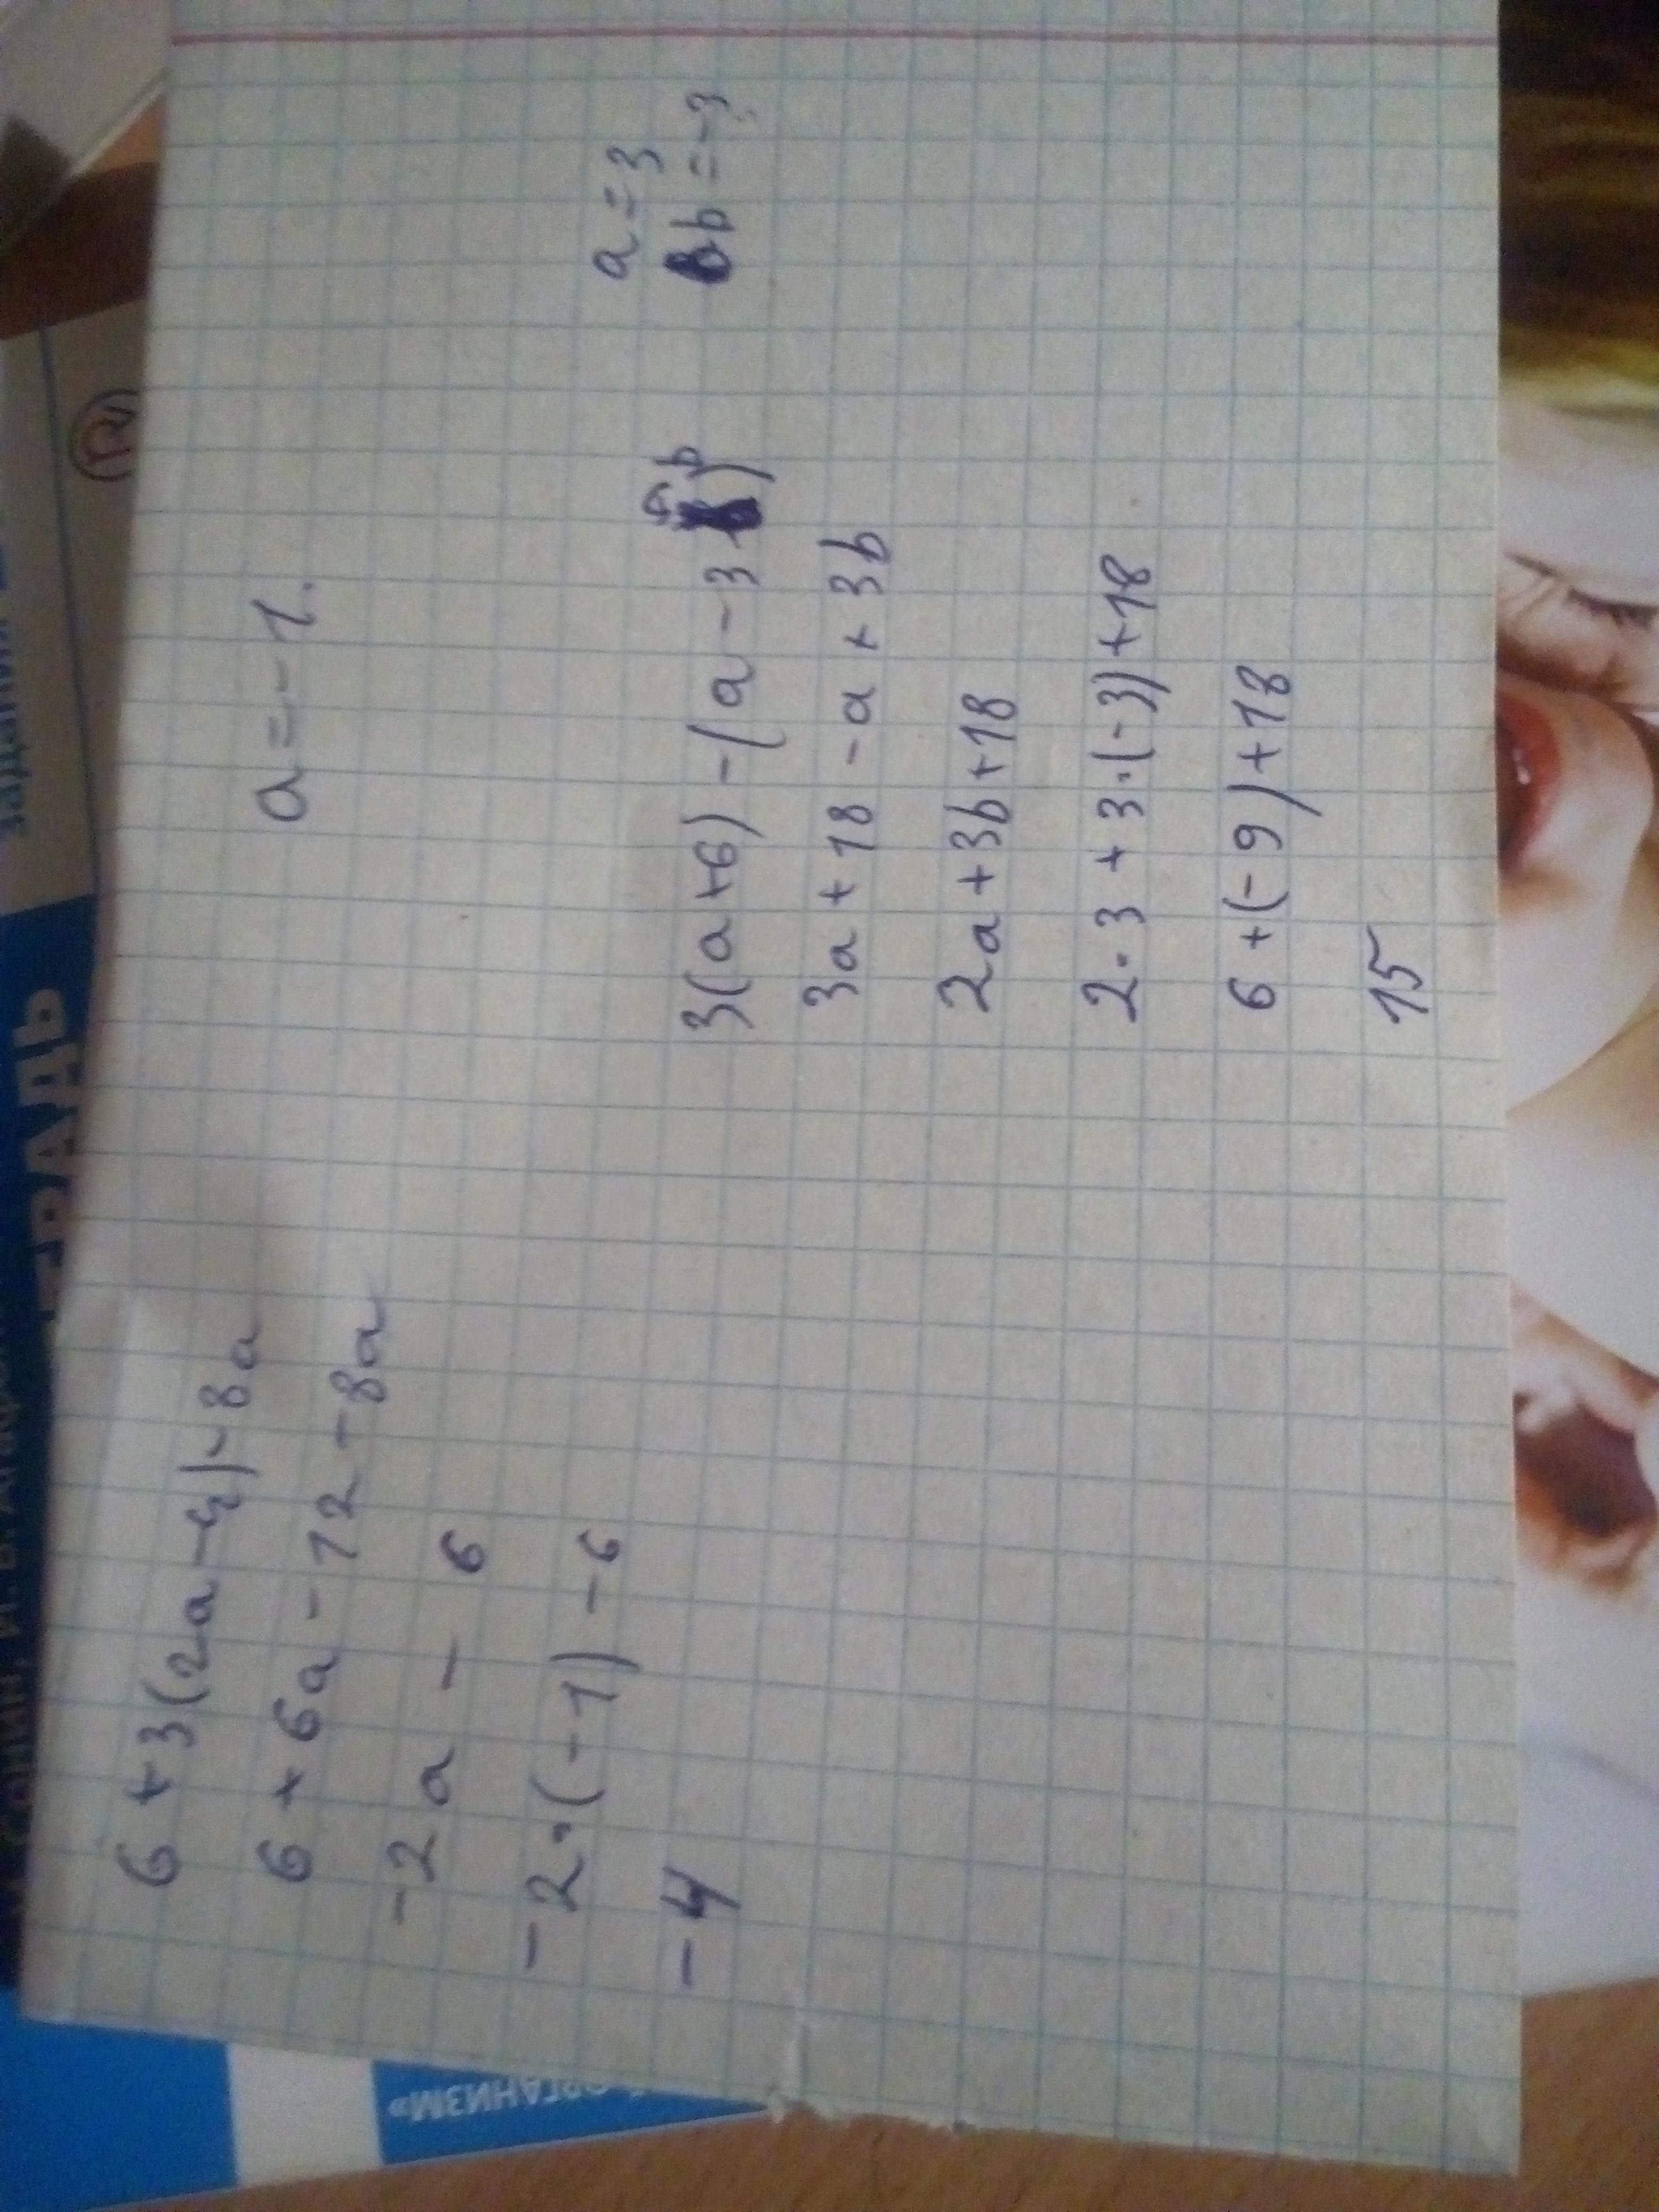 6 + 3(2a - 4) - 8a
6 + 6a - 12 - 8a
-2a - 6
-2·(-1) - 6
-4
a = -1.
a = 3
b = -3
3(a+6) - (a - 3b)
3a + 18 - a + 3b
2a + 3b + 18
2·3 + 3·(-3) + 18
6 + (-9) + 18
15
ОРГАНИЗМ»